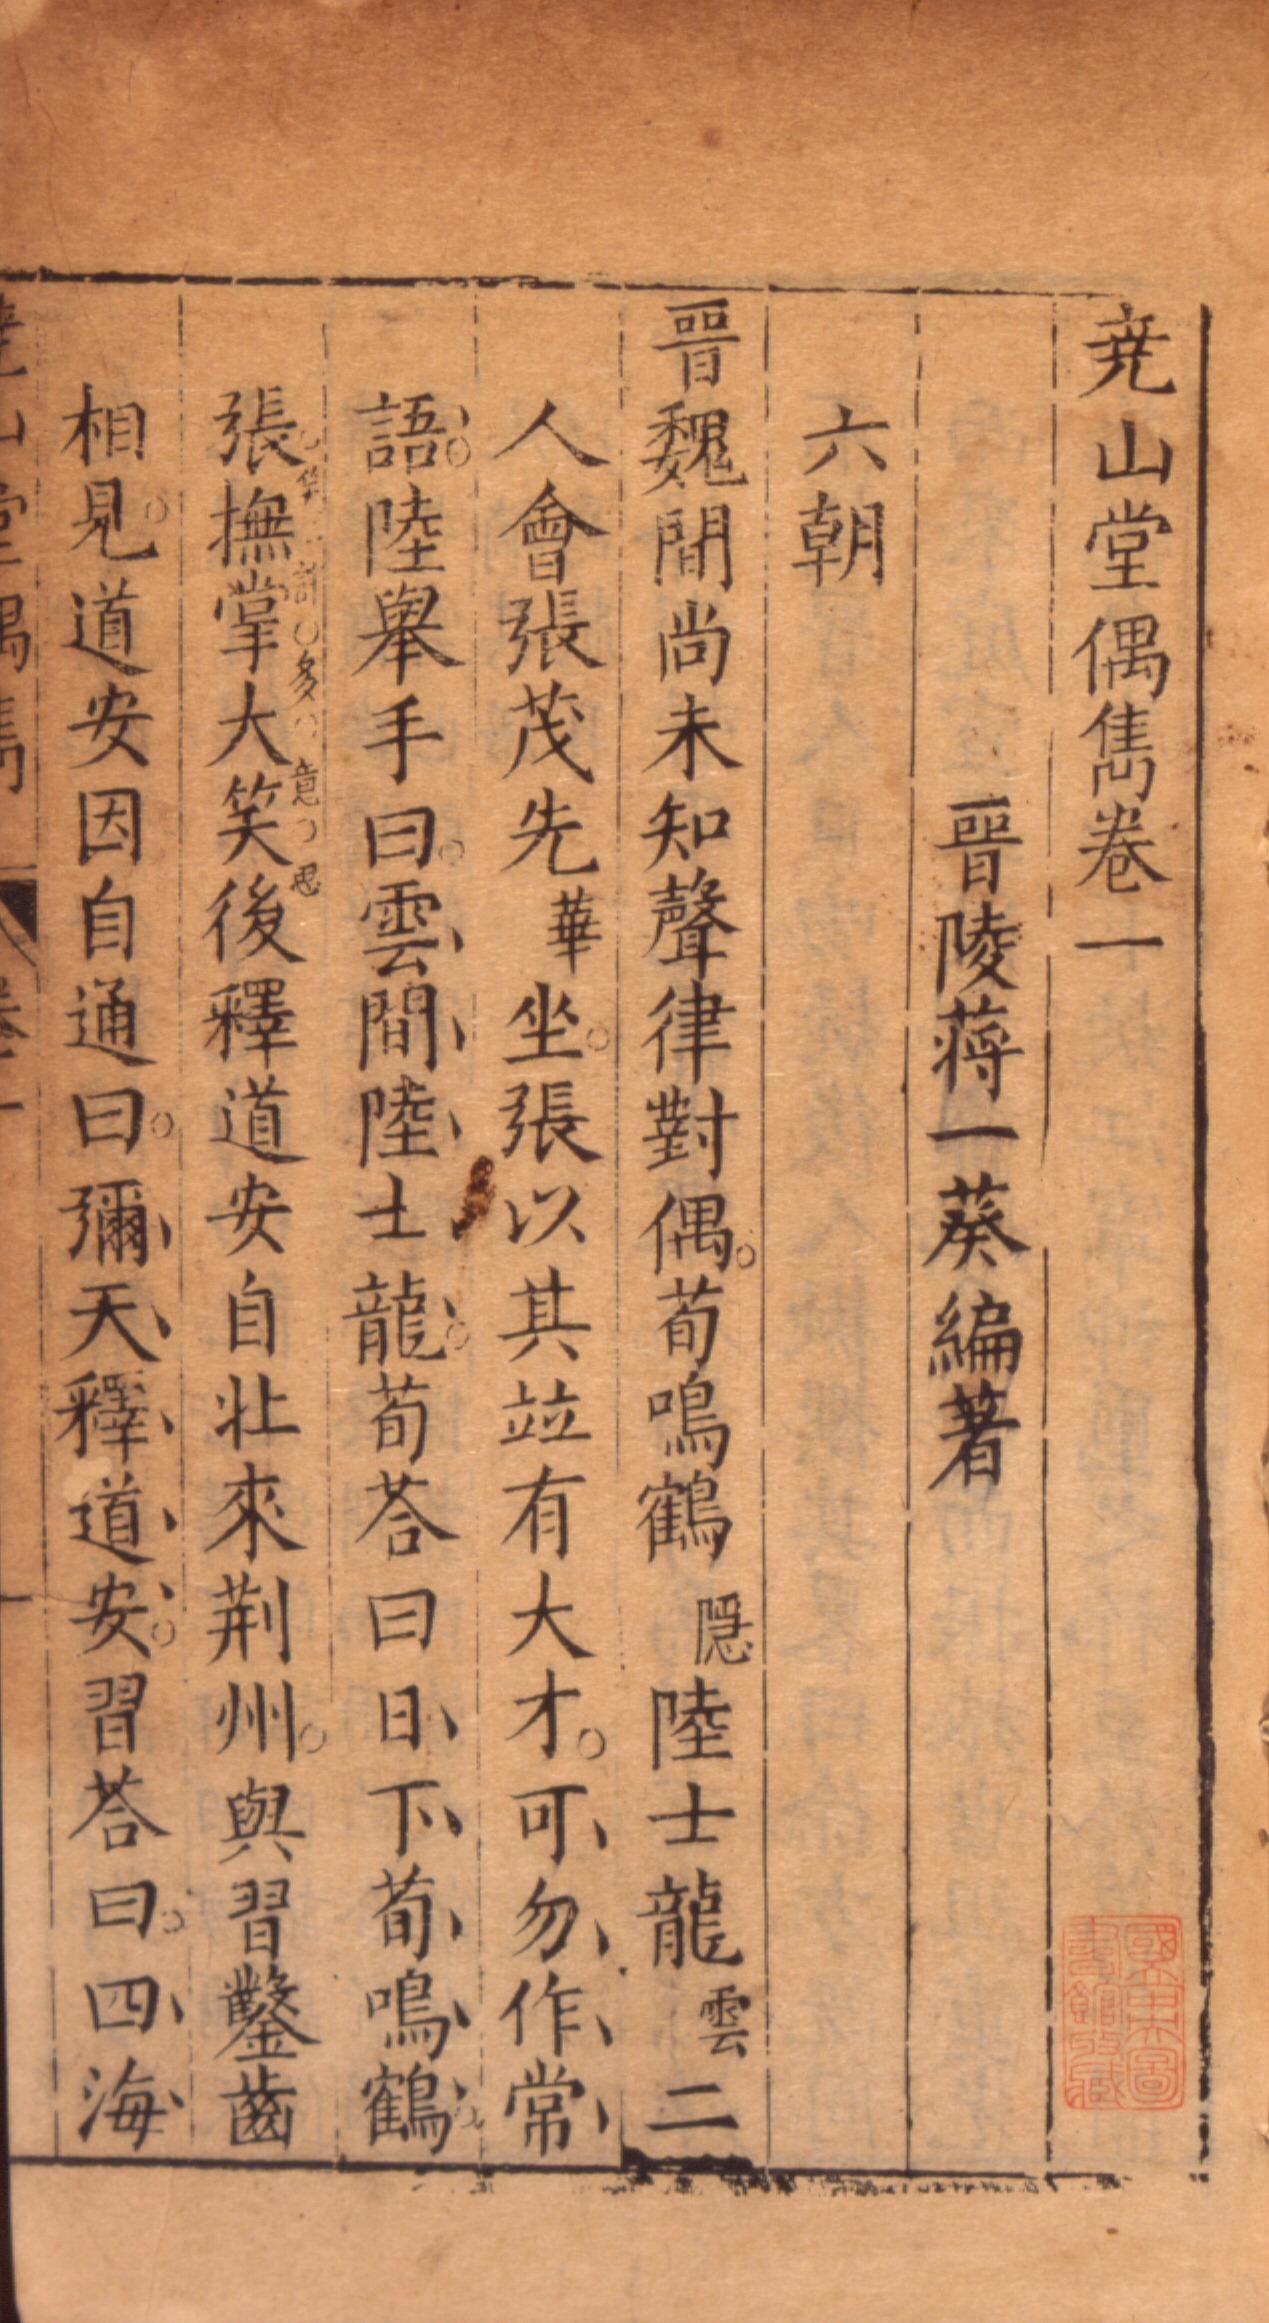 尭山堂偶雋卷一
晉陵蒋一葵編著
六朝
晉魏間尚未知聲律對偶荀鳴鶴隱陸士龍雲二
人會張茂先華坐張以其竝有大才可勿作常
語陸舉手曰雲間陸士龍荀荅曰日下荀鳴鶴
張撫掌大笑後釋道安自壯來荆州與習鑿齒
相見道安因自通曰彌天釋道安習荅曰四海
國立中央圖
書館收藏